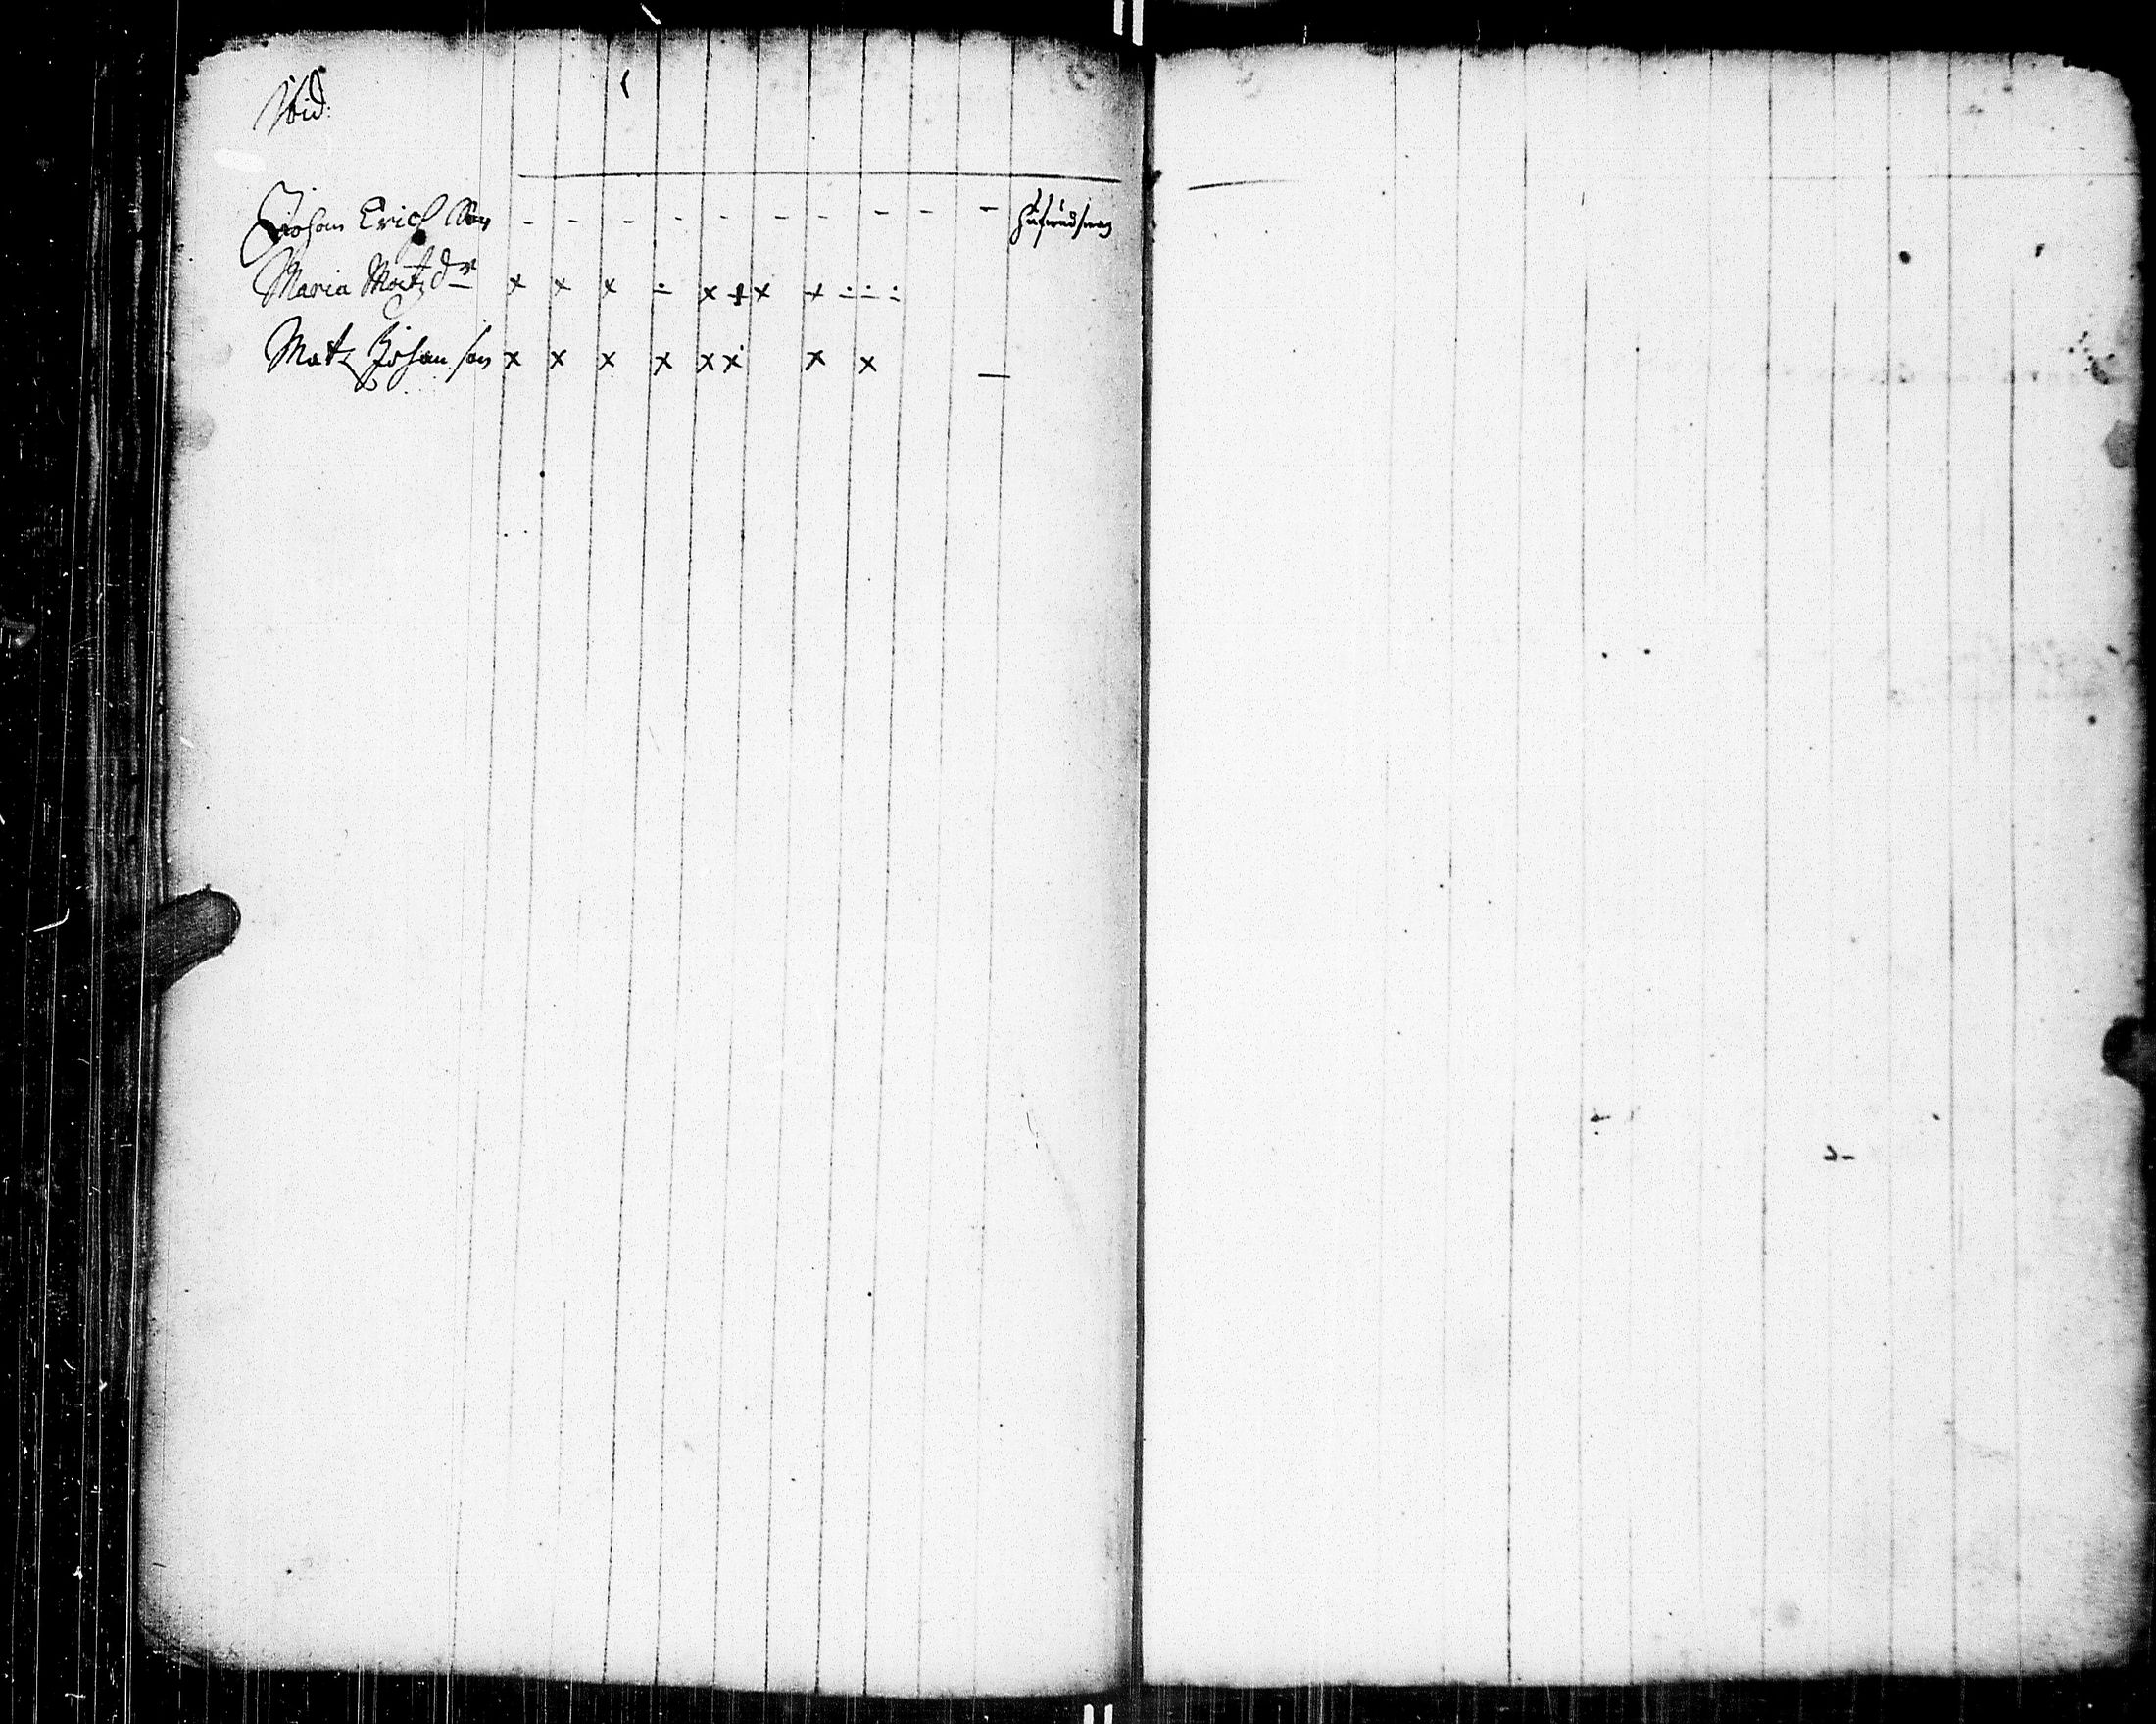 Johan Erich Son - - - - - - - - - -
Maria Matz dr x x x ÷ x + x + ÷ ÷ ÷
Matz Johan son x x x x x x x x —